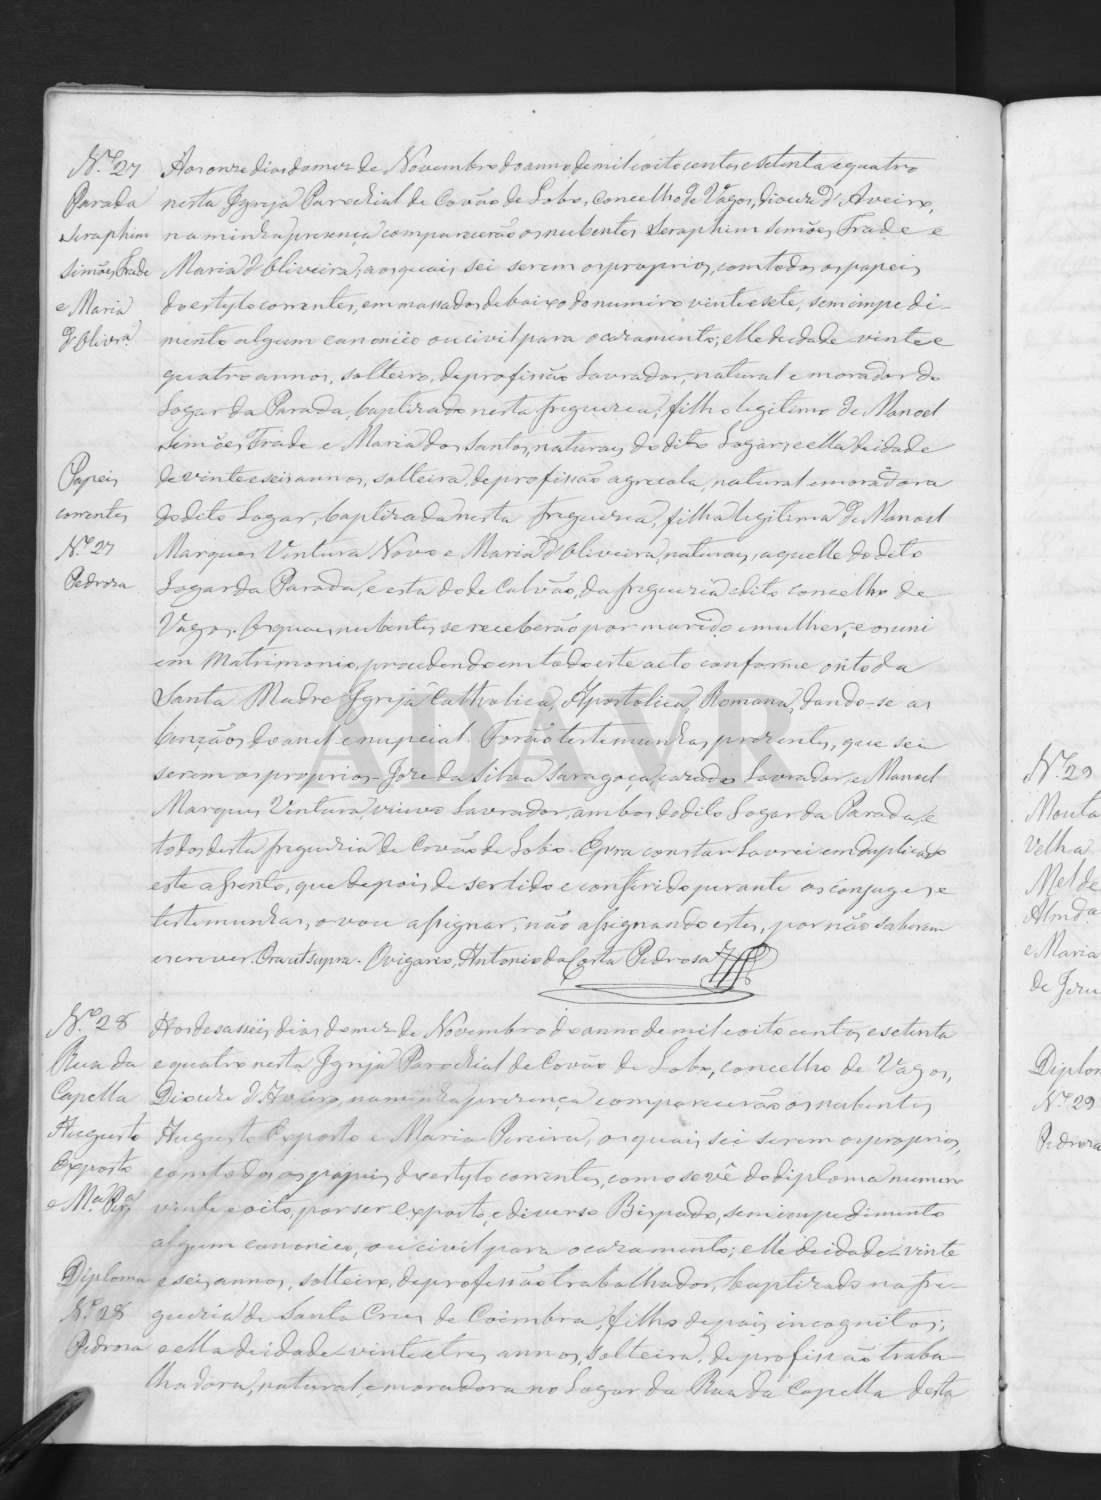 N.º 27
Parada
Seraphim
Simões Frade
e Maria
d'Olivrª
Papeis
correntes
N.º 27
Pedroza
Aos onze dias do mez de Novembro do anno de mil oito centos e setenta e quatro
nesta Igreja Parochial de Covão de Lobo, concelho de Vagos, diocese d'Aveiro,
na minha presença comparecerão os nubentes Seraphim Simões Frade e
Maria d'Oliveira, aos quaes sei serem os proprios, com todos os papeis
do estylo correntes, emmassados debaixo do numero vinte e sete, sem impedi-
mento algum canonico ou civil para o cazamento; elle de idade vinte e
quatro annos, solteiro, de profissão Lavrador, natural e morador do
Logar da Parada, baptizado nesta freguezia, filho legitimo de Manoel
Simões Frade e Maria dos Santos, naturaes do dito Logar; e ella de idade
de vinte e seis annos, solteira, de profissão agricola, natural e moradora
do dito Logar, baptizada nesta freguezia, filha legitima de Manoel
Marques Ventura Novo e Maria d'Oliveira, naturaes, aquelle do dito
Logar da Parada, e esta do de Calvão, da freguezia e dito concelho de
Vagos. Os quaes nubentes se receberão por marido e mulher, e os uni
em Matrimonio, procedendo em todo este acto conforme o rito da
Santa Madre Igreja Catholica, Apostolica, Romana, dando-se as
benções do anel e nupcial. Forão testemunhas prezentes, que sei
serem os proprios - Joze da Silva Saragoça, cazado Lavrador, e Manoel
Marques Ventura, viuvo Lavrador, ambos do dito Logar da Parada, e
todos desta freguezia de Covão de Lobo. E pra constar Lavrei em duplicado
este assento, que depois de ser lido e conferido perante os conjuges e
testemunhas, o vou assignar, não assignando estes, por não saberem
escrever. Era ut supra. O vigario, Antonio da Costa Pedrosa
N.º 28
Rua da
Capella
Augusto
Exposto
e M.ª Perª
Diploma
N.º 28
Pedroza
Aos desasseis dias do mez de Novembro do anno de mil oito centos e setenta
e quatro nesta Igreja Parochial de Covão de Lobo, concelho de Vagos,
Diocese d'Aveiro, na minha prezença comparecerão os nubentes
Augusto Exposto e Maria Pereira, os quaes sei serem os proprios,
com todos os papeis do estylo correntes, como se vê do diploma numero
vinte e oito, por ser Exposto, e diverso Bispado, sem impedimento
algum canonico, ou civil para o cazamento; elle de idade vinte
e seis annos, solteiro, de profissão trabalhador, baptizado na fre-
guezia de Santa Cruz de Coimbra, filho de pais incognitos;
e ella de idade vinte e tres annos, solteira, de profissão traba-
lhadora, natural, e moradora no Logar da Rua da Capella desta
N.º 29
Mouta
Velha
e Maria
N.º 29
Pedroza
ADAVR